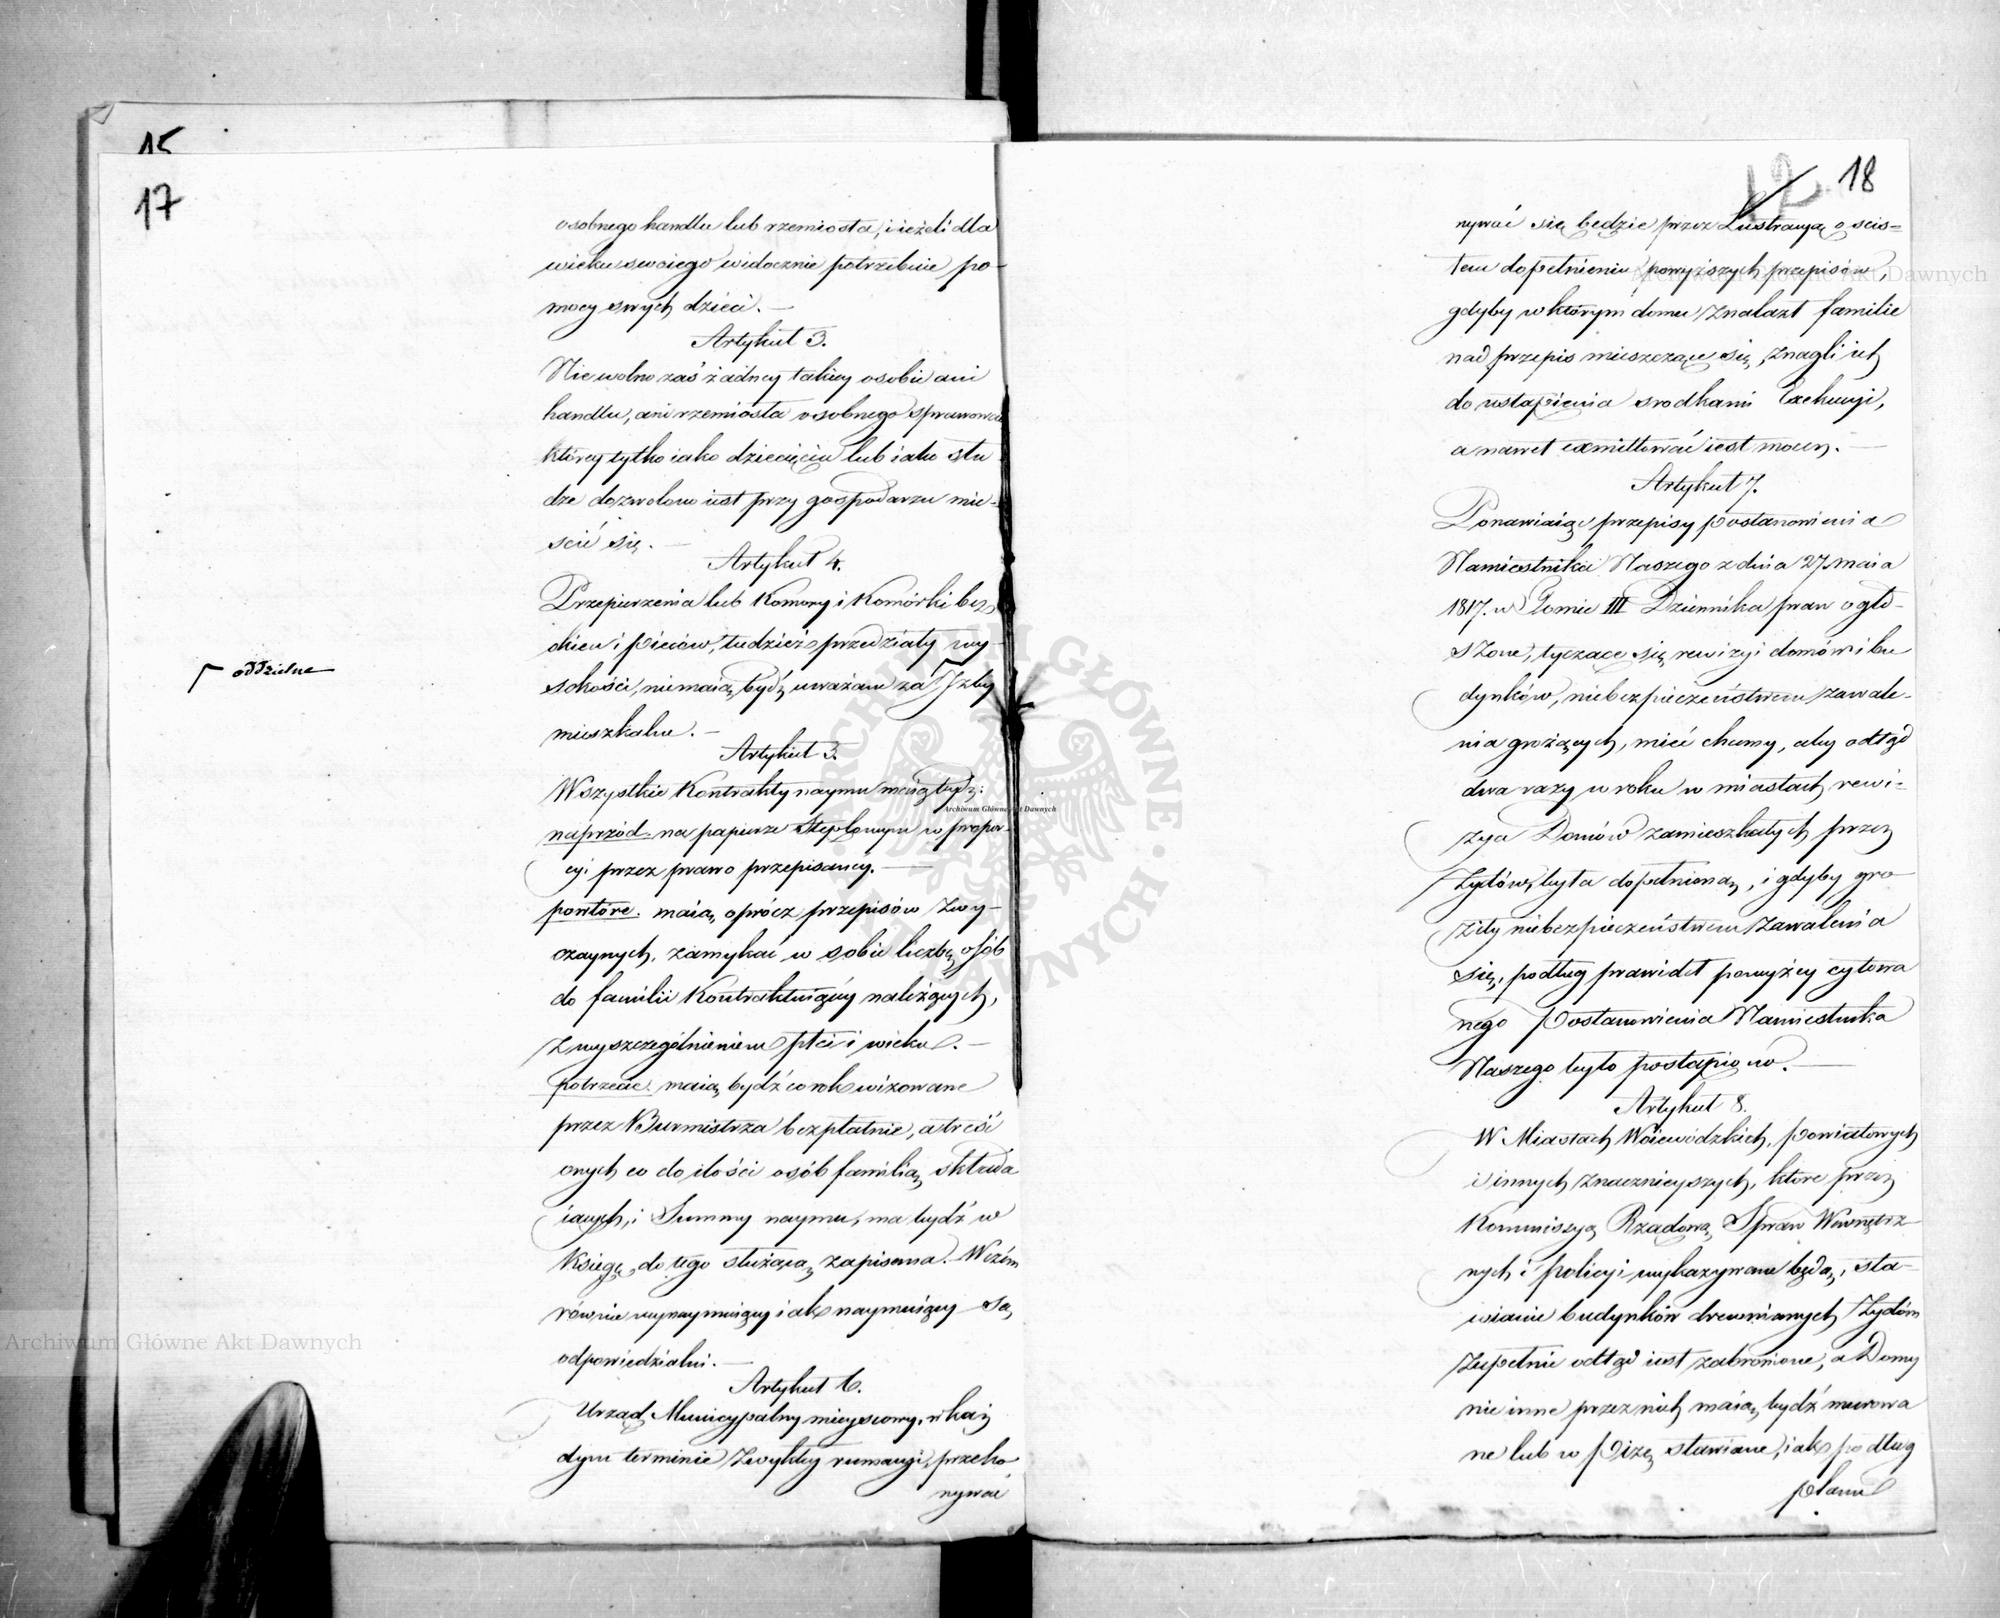 15
17
osobnego handlu lub rzemiosła, i ieżeli dla
wieku swoiego widocznie potrzebuie po-
mocy swych dzieci. —
Artykuł 3.
Nie wolno zaś żadney takiey osobie ani
handlu, ani rzemiosła osobnego sprawować
którey tylko iako dziecięciu lub iako słu
dze dozwolono iest przy gospodarzu mie-
ścić się. —
Artykuł 4.
Przepierzenia lub Komory i Komórki bez
okien i pieców, tudzież przedziały wy-
sokości, nie maią bydź uważane za Izby
oddzielne
mieszkalne. —
Artykuł 5.
Wszystkie Kontrakty naymu maią bydź:
naprzód - na papierze Steplowym w propor-
cyi przez prawo przepisaney. —
powtóre. maią oprócz przepisów zwy-
czaynych, zamykać w sobie liczbę osób
do familii Kontraktuiący należących,
z wyszczególnieniem płci i wieku. —
potrzecie. maią bydź co rok wizowane
przez Burmistrza bezpłatnie, a treść
onych co do ilości osób familią składa
iących, i Summy naymu, ma bydź w
Księgę do tego służącą zapisana. W czém
równie wynaymuiący iak naymuiący są
odpowiedzialni. —
Artykuł 6.
Urząd Municypalny mieyscowy, w każ
dym terminie zwykłey rumacyi, przeko
nywać
18
nywać się będzie przez Lustracyą o ścis=
łem dopełnieniu powyższych przepisów,
gdyby w którym domu znalazł familie
nad przepis mieszczące się, znagli ich
do ustąpienia srodkami Exekucyi,
a nawet exmittować iest mocen. —
Artykuł 7.
Ponawiaiąc przepisy postanowienia
Namiestnika Naszego z dnia 27 maia
1817. w Tomie III Dziennika praw ogło-
szone, tyczące się rewizyi domów i bu
dynków, niebezpieczeństwem zawale-
nia grożących, mieć chcemy, aby odtąd
dwa razy w roku w miastach rewi-
zya Domów zamieszkałych przez
Żydów, była dopełnioną, i gdyby gro
ziły niebezpieczeństwem zawalenia
się, podług prawideł powyżey cytowa
nego Postanowienia Namiestnika
Naszego było postąpiono. —
Artykuł 8.
W Miastach Woiewódzkich, powiatowych
i innych znacznieyszych, które przez
Kommissyą Rządową Spraw Wewnętrz
nych i policyi wykazywane będą, sta-
wianie budynków drewnianych Żydom
zupełnie odtąd iest zabronione, a Domy
nie inne przez nich maią bydź murowa
ne lub w Pizę stawiane, iak podług
planu
Archiwum Główne Akt Dawnych
Archiwum Główne Akt Dawnych
Archiwum Główne Akt Dawnych
ARCHIWUM GŁÓWNE AKT DAWNYCH